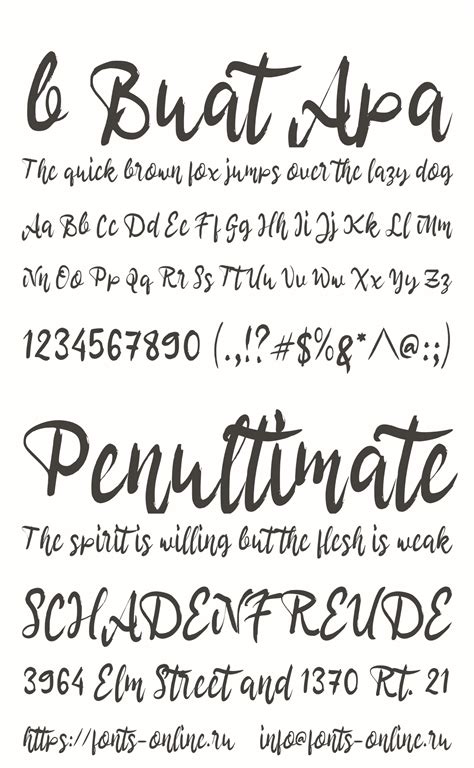 b Buat Apa
The quick brown fox jumps over the lazy dog
Aa Bb Cc Dd Ee Ff Gg Hh Ii Jj Kk Ll Mm
Nn Oo Pp Qq Rr Ss Tt Uu Vv Ww Xx Yy Zz
1234567890 (.,!?#$%&*/\@:;)
Penultimate
The spirit is willing but the flesh is weak
SCHADENFREUDE
3964 Elm Street and 1370 Rt. 21
https://fonts-online.ru info@fonts-online.ru